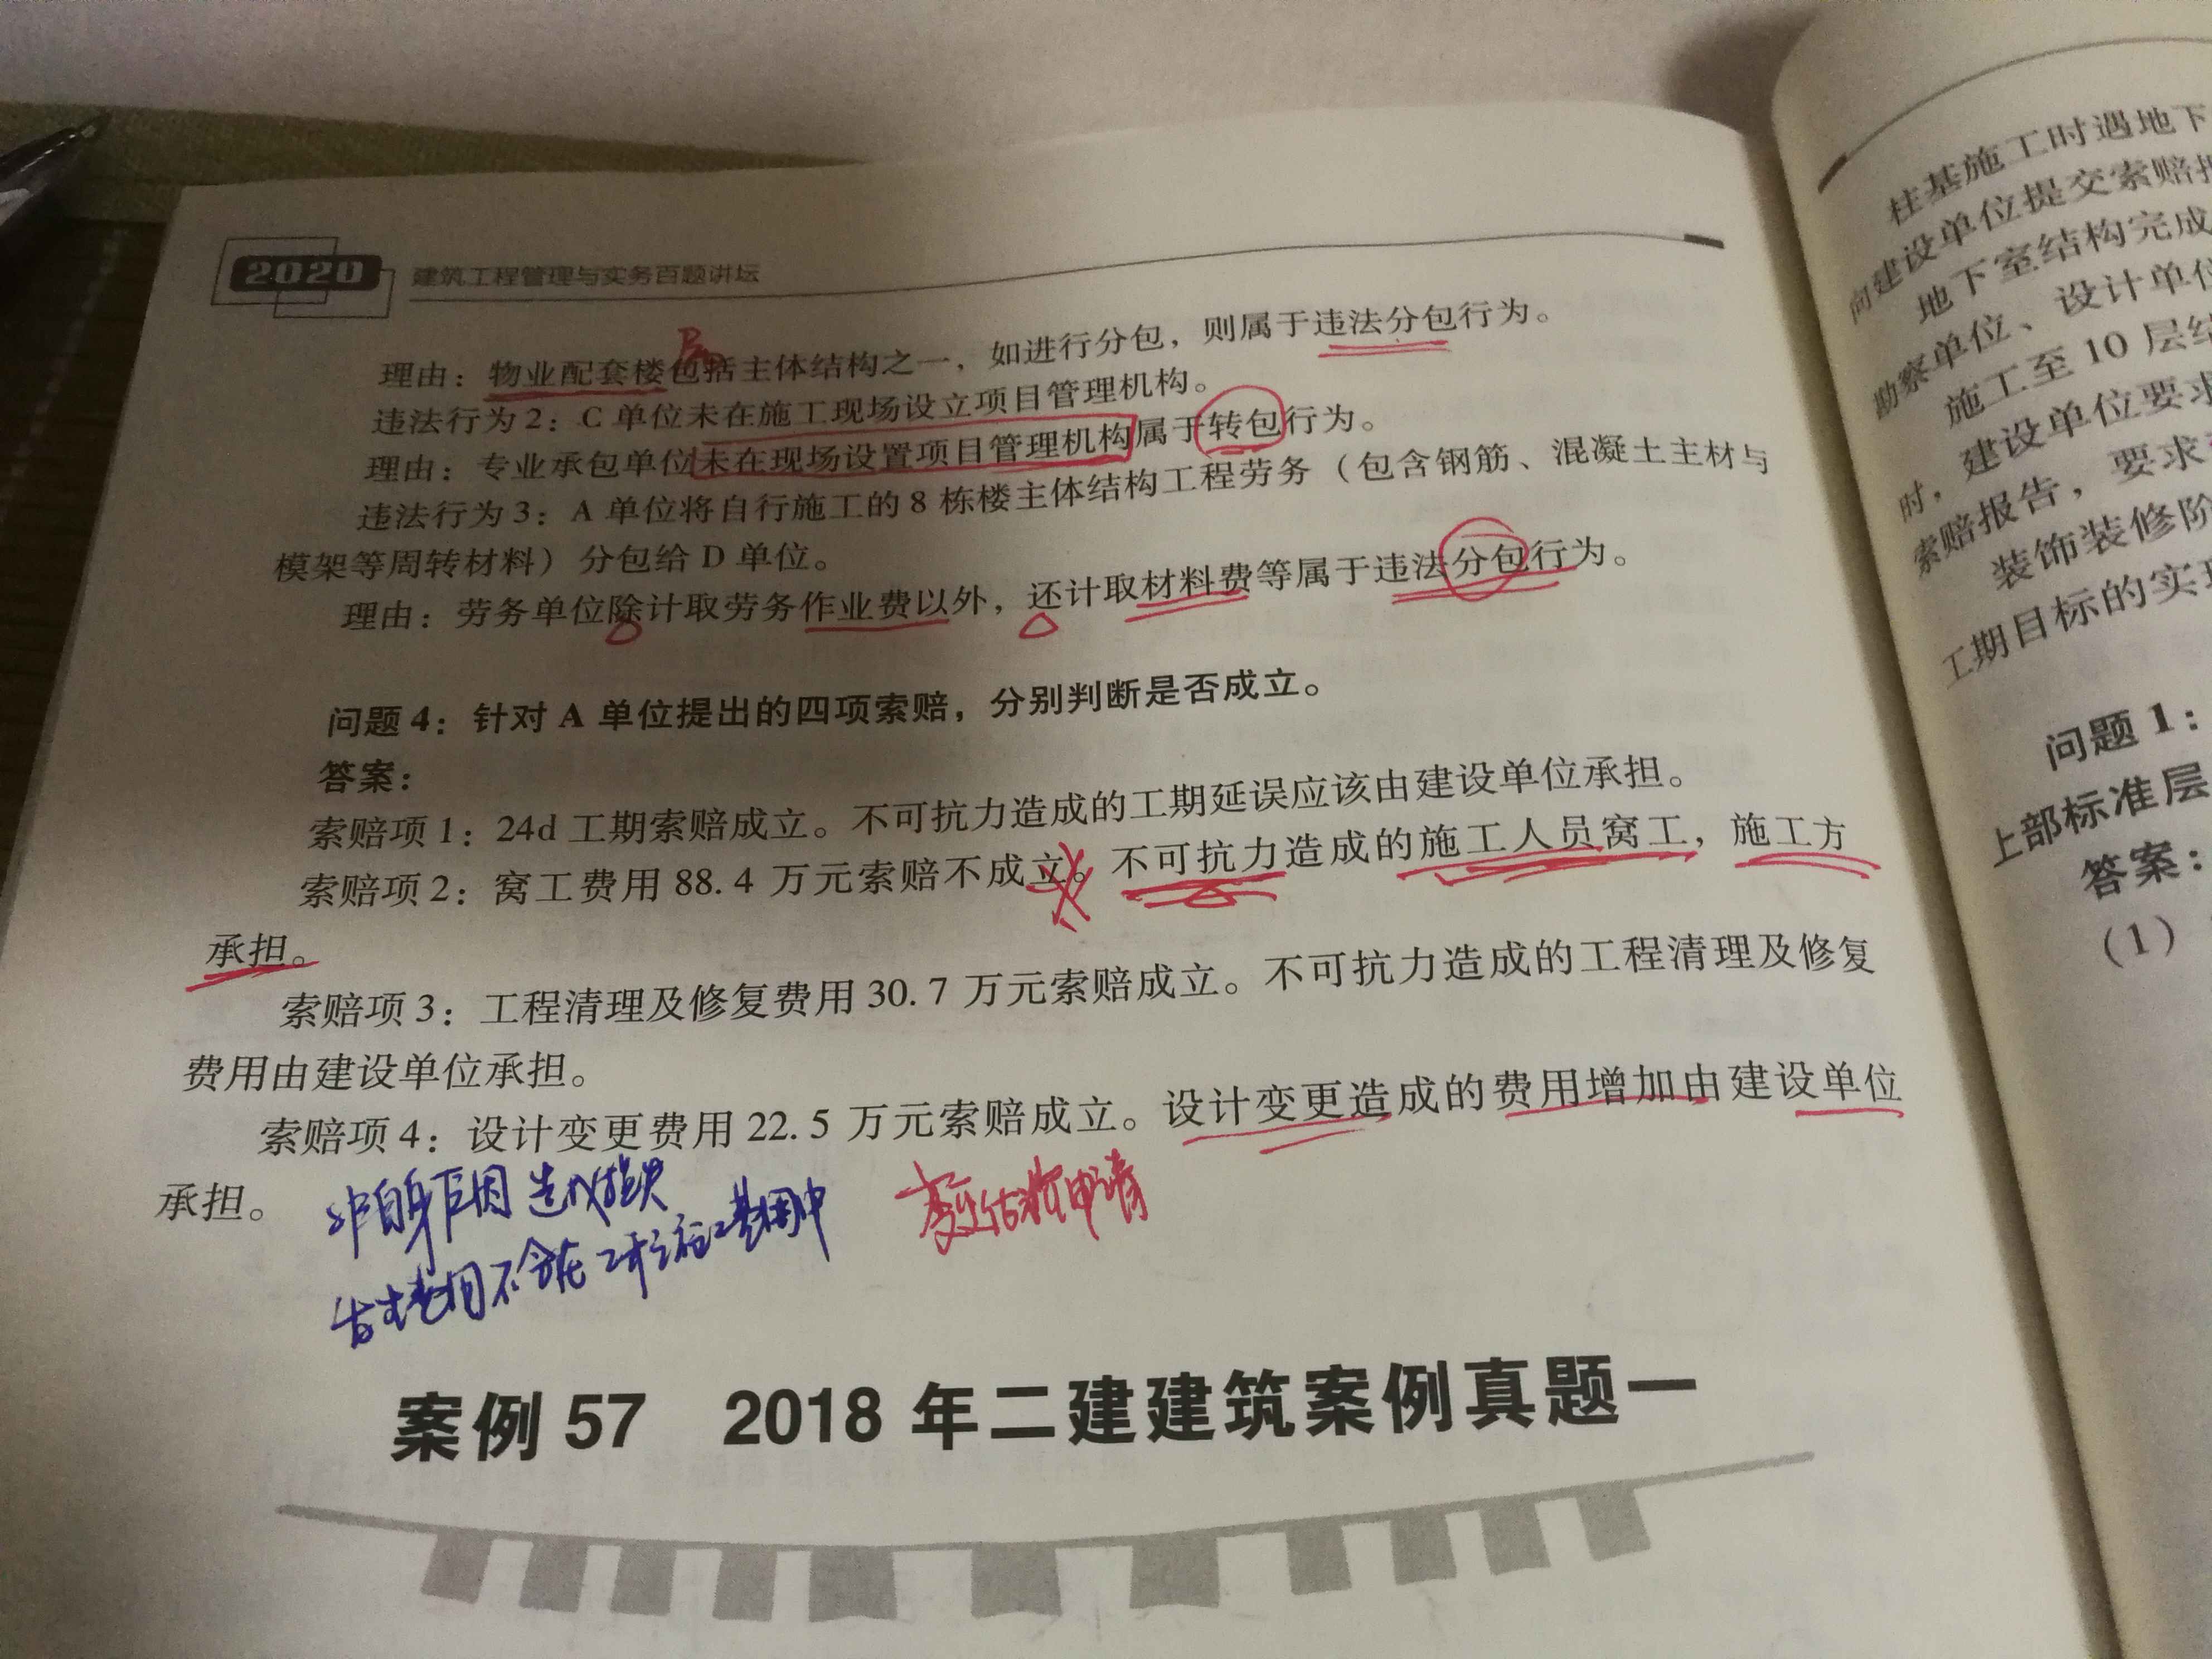 2020 建筑工程管理与实务百题讲坛
理由：物业配套楼包括主体结构之一，如进行分包，则属于违法分包行为。
违法行为2：C单位未在施工现场设立项目管理机构。
理由：专业承包单位未在现场设置项目管理机构属于转包行为。
违法行为3：A单位将自行施工的8栋楼主体结构工程劳务（包含钢筋、混凝土主材与
模架等周转材料）分包给D单位。
理由：劳务单位除计取劳务作业费以外，还计取材料费等属于违法分包行为。
问题4：针对A单位提出的四项索赔，分别判断是否成立。
答案：
索赔项1：24d工期索赔成立。不可抗力造成的工期延误应该由建设单位承担。
索赔项2：窝工费用88.4万元索赔不成立。不可抗力造成的施工人员窝工，施工方
承担。
索赔项3：工程清理及修复费用30.7万元索赔成立。不可抗力造成的工程清理及修复
费用由建设单位承担。
索赔项4：设计变更费用22.5万元索赔成立。设计变更造成的费用增加由建设单位
承担。
非自身原因造成损失
变更估价申请
案例57 2018年二建建筑案例真题一
桩基施工时遇地下
向建设单位提交索赔报
地下室结构完成
勘察单位、设计单位
施工至10层结
时，建设单位要求
索赔报告，要求
装饰装修阶
工期目标的实现
问题1：
上部标准层
答案：
（1）